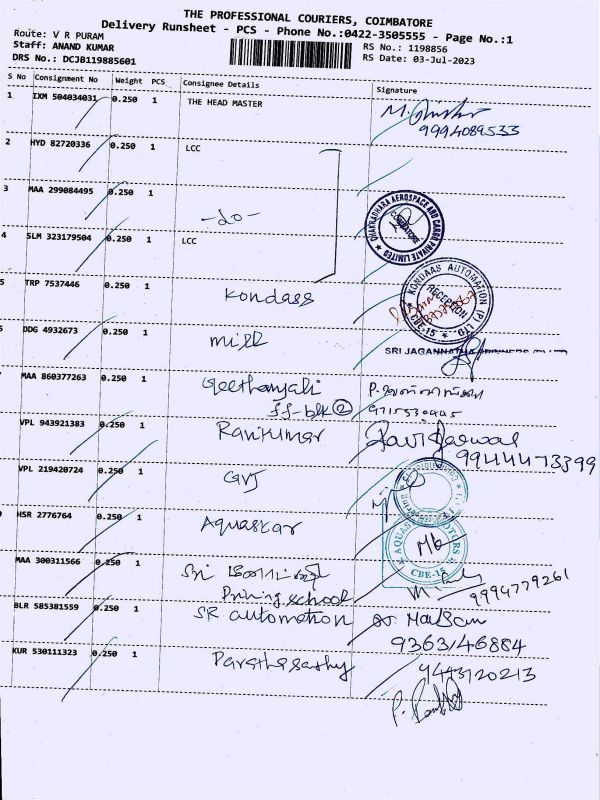 THE PROFESSIONAL COURIERS, COIMBATORE
Delivery Runsheet - PCS - Phone No.:0422-3505555 - Page No.:1
Route: V R PURAM
RS No.: 1198856
Staff: ANAND KUMAR
RS Date: 03-Jul-2023
DRS No.: DCJB119885601
S No Consignment No Weight PCS Consignee Details Signature
1 IXM 504034031 0.250 1 THE HEAD MASTER
9994089533
2 HYD 82720336 0.250 1 LCC
3 MAA 299084495 0.250 1 -do-
DHAKKADHARA AEROSPACE AND CARGO PRIVATE LIMITED COIMBATORE
4 SLM 323179504 0.250 1 LCC
5 TRP 7537446 0.250 1 Kondass
KONDAAS AUTOMATION (P) LTD. RECEPTION CBE-15
6 DDG 4932673 0.250 1 mill
SRI JAGANNATHA
MAA 860377263 0.250 1 Geethanjali
ff-blk ② 9715530445
VPL 943921383 0.250 1 Ravikumar
9944473399
VPL 219420724 0.250 1 GVJ
HSR 2776764 0.250 1 Aquastar
AQUAS MOTORS CBE-15
MAA 300311566 0.250 1 Sri
Driving school 9994779261
BLR 585381559 0.250 1 SR automation
9363146884
KUR 530111323 0.250 1 Parathasarthy 9443120213